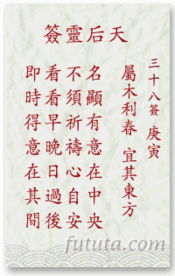 天后靈簽
三十八簽 庚寅
屬木利春 宜其東方
名顯有意在中央
不須祈禱心自安
看看早晚日過後
即時得意在其間
fututa.com